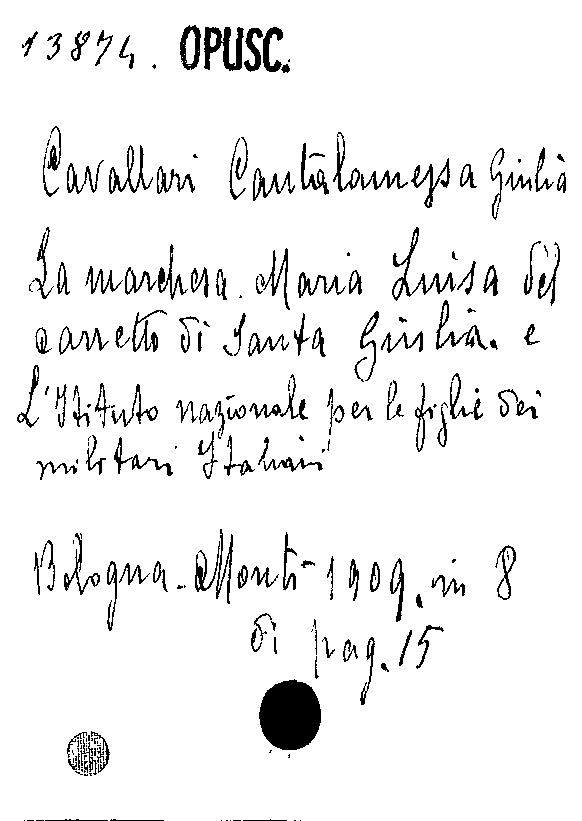 13874. OPUSC.
Cavallari Cantalamessa Giulia
La marchesa. Maria Luisa del
carretto di Santa Giulia. e
L'Istituto nazionale per le figlie dei
militari Italiani
Bologna - Monti - 1909. in 8
di pag. 15